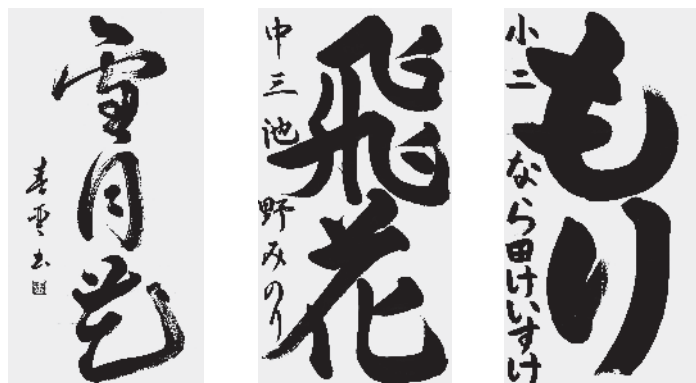 雪月花
春雲書
飛花
中三池野みのり
もり
小二なら田けいすけ